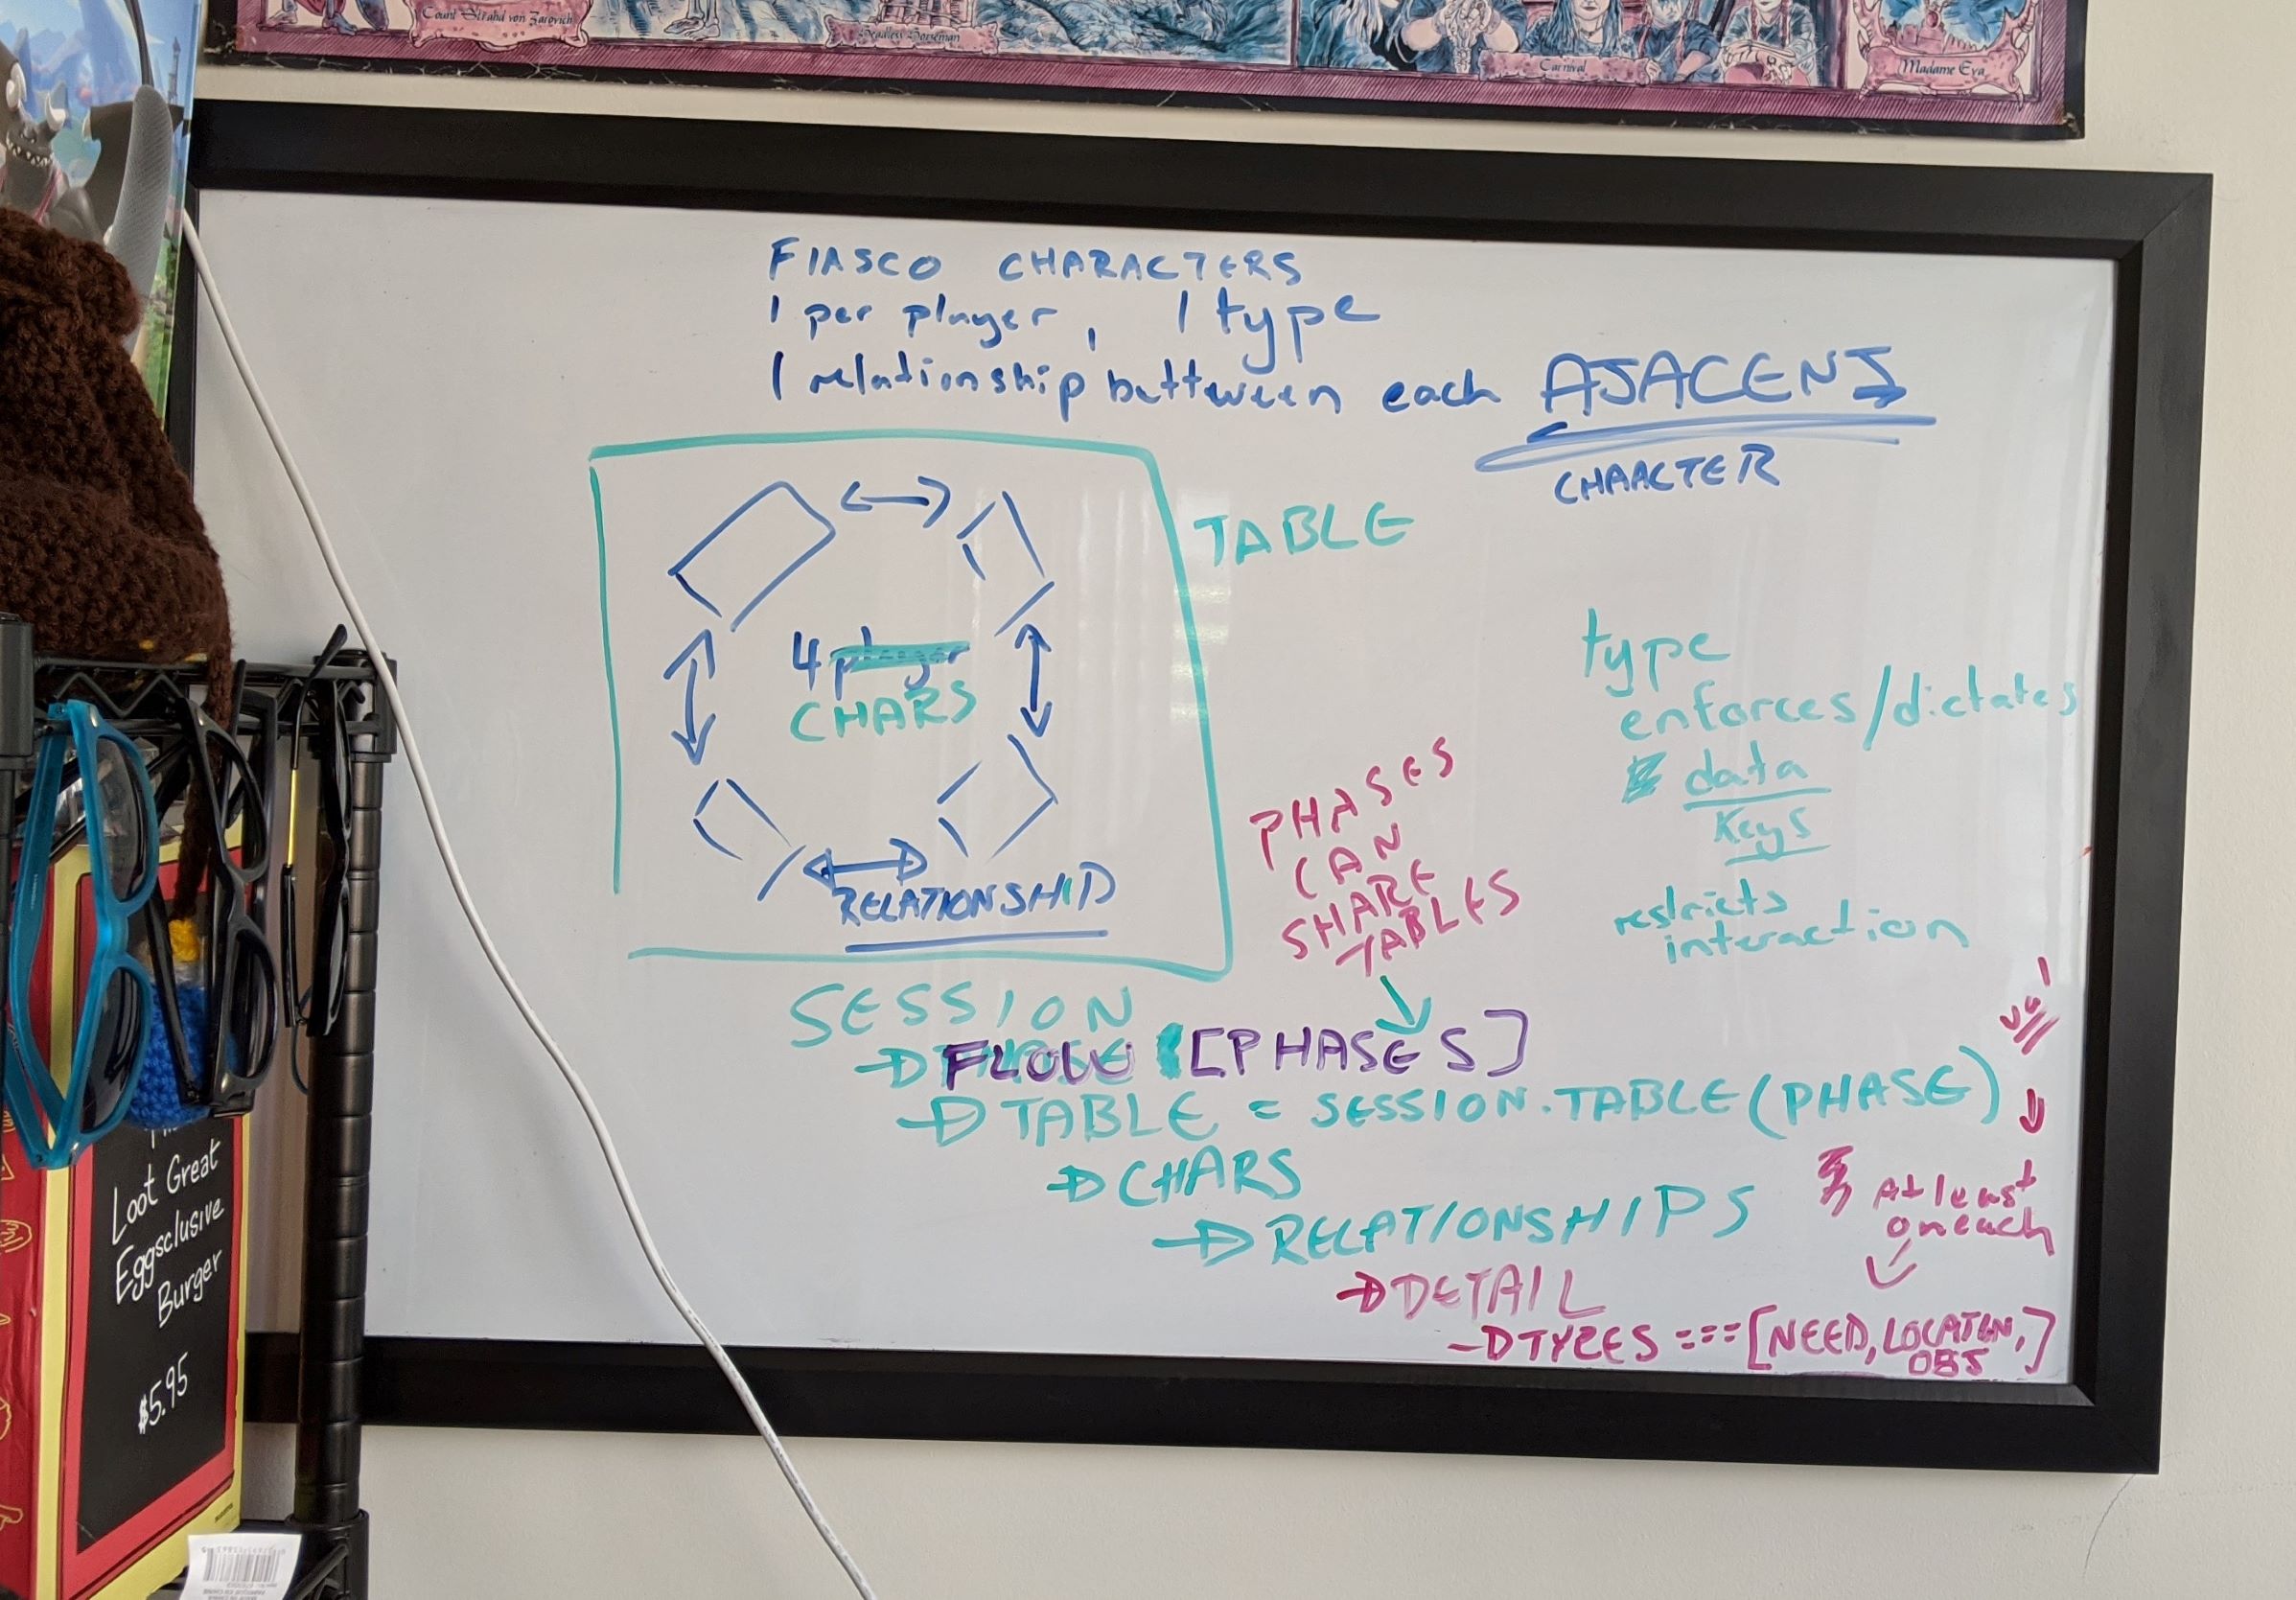 Count Strahd von Zarovich
Headless Horseman
Carnival
Madame Eva
FIASCO CHARACTERS
1 per player, 1 type
1 relationship buttween each AJACENT
CHAACTER
TABLE
4 player
CHARS
RELATIONSHIP
type
enforces/dictates
data
Keys
restricts
interaction
PHASES
CAN
SHARE
TABLES
SESSION
FLOW [PHASES]
TABLE = SESSION.TABLE(PHASE)
CHARS
RELATIONSHIPS
At least
on each
DETAIL
TYPES === [NEED, LOCATON,
OBJ]
Loot Great
Eggsclusive
Burger
$5.95